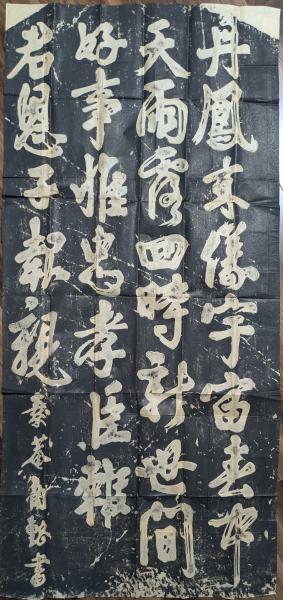 丹鳳来儀宇宙春中
天雨露四時新世間
好事惟忠孝臣報
君恩子報親
書